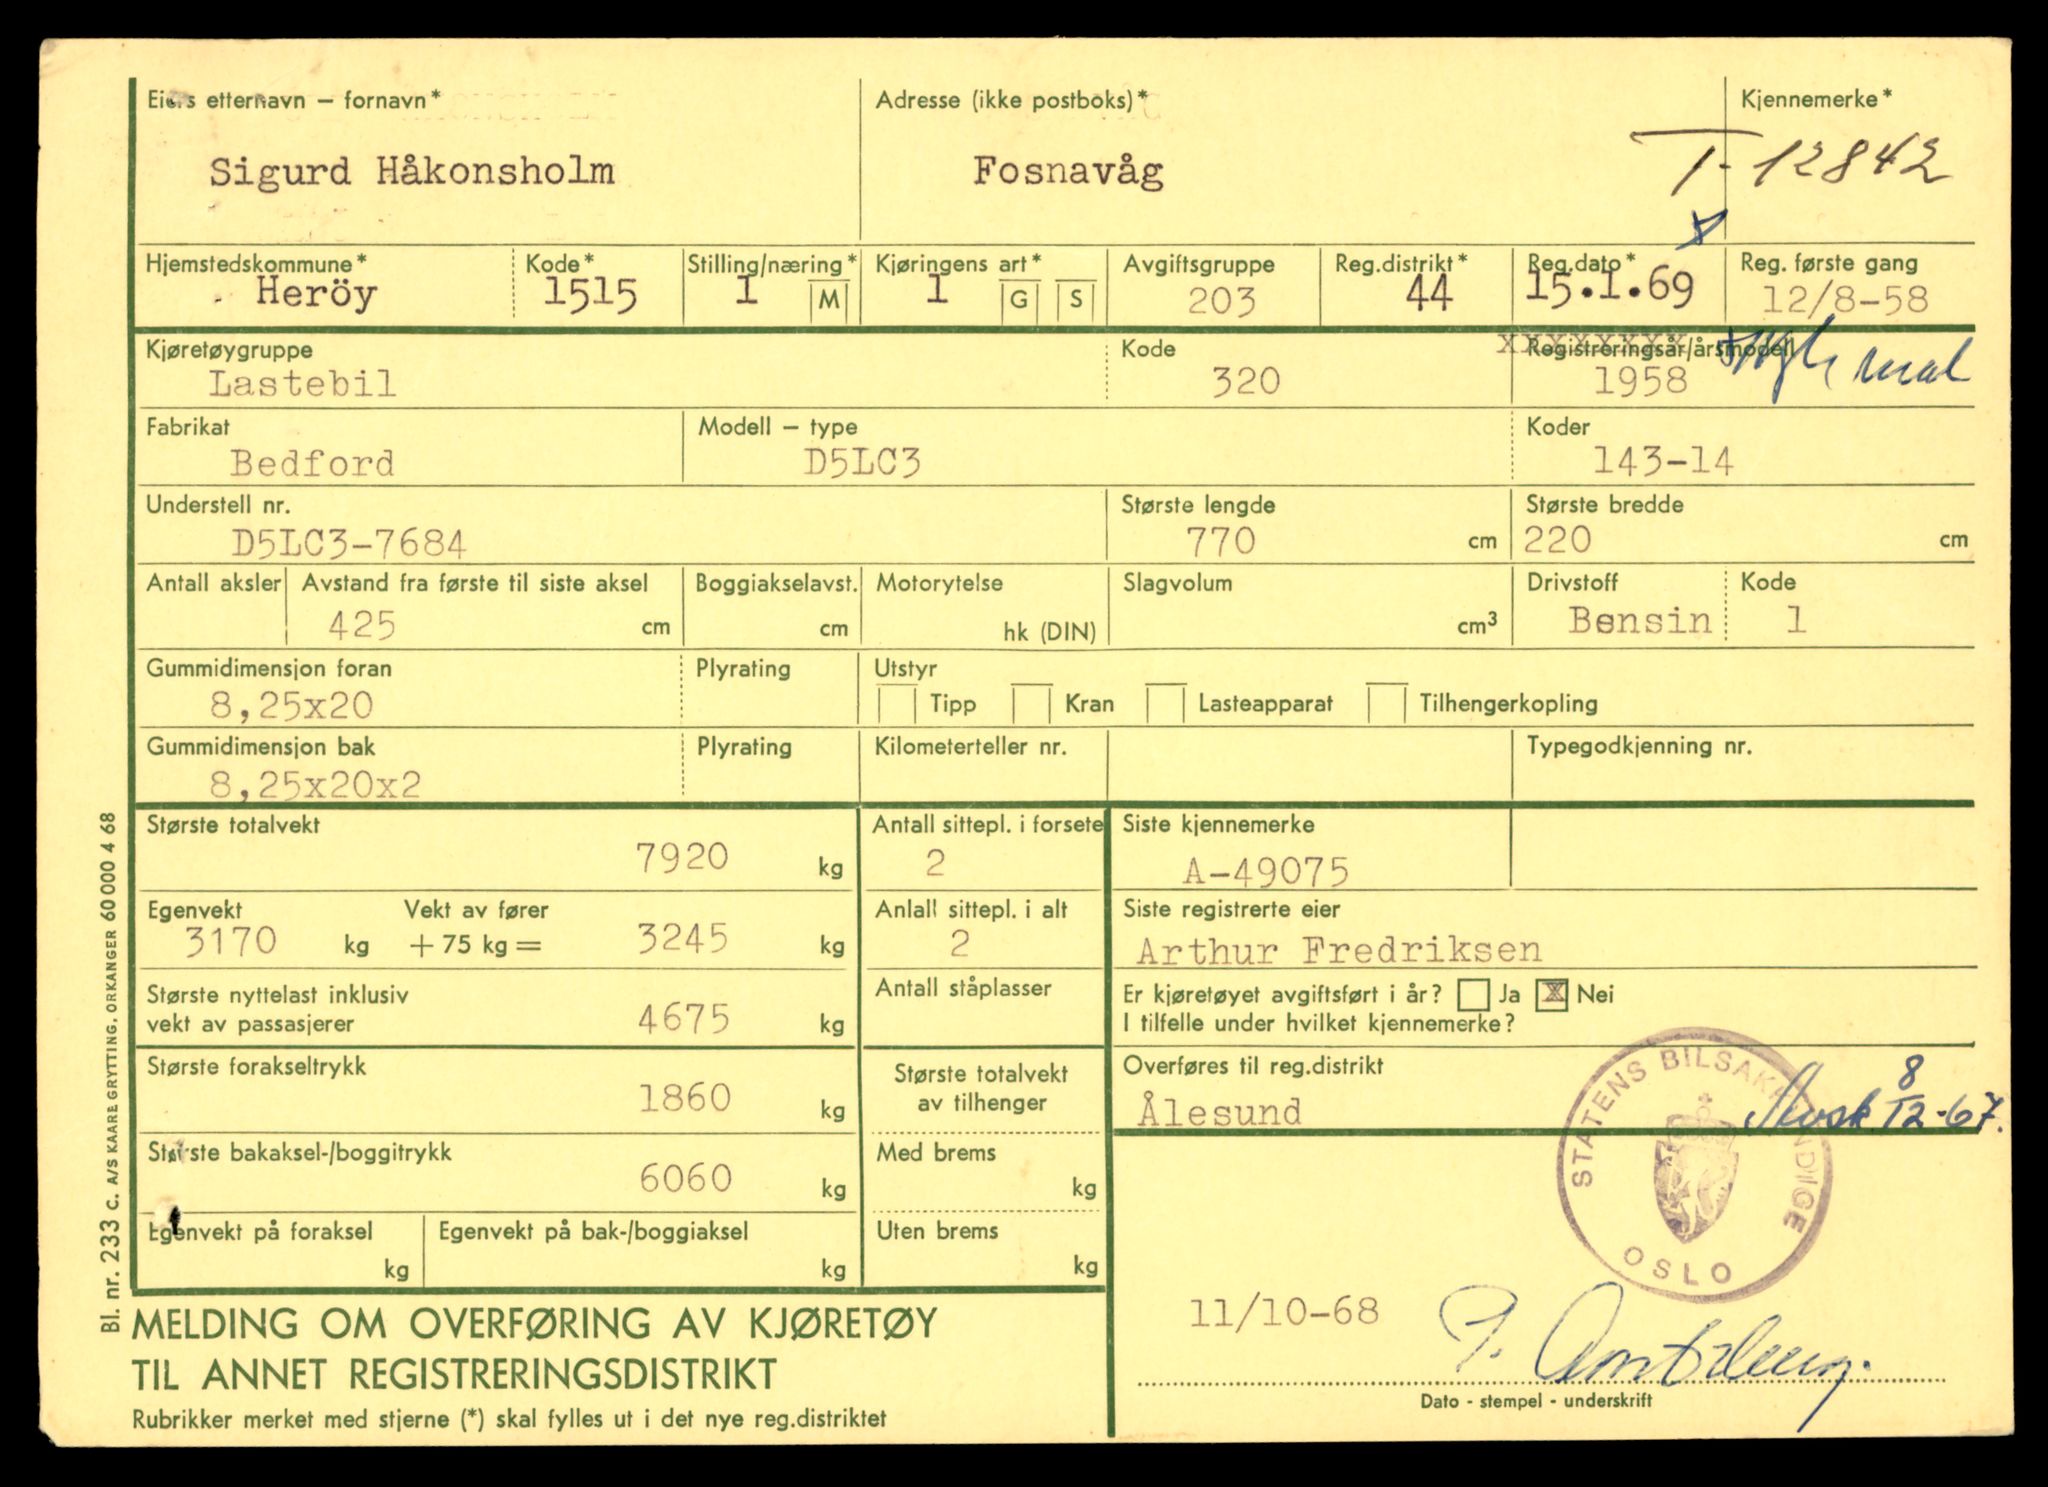 Eiers etternavn – fornavn* Adresse (ikke postboks)* Kjennemerke*
Sigurd Håkonsholm Fosnavåg T-12842
Hjemstedskommune* Kode* Stilling/næring* Kjøringens art* Avgiftsgruppe Reg.distrikt* Reg.dato* Reg. første gang
Heröy 1515 1 M 1 G S 203 44 15.1.69 12/8-58
Kjøretøygruppe Kode Registreringsår/årsmodell
xxxxxxxx
Lastebil 320 1958
Fabrikat Modell – type Koder
Bedford D5LC3 143-14
Understell nr. Største lengde Største bredde
D5LC3-7684 770 cm 220 cm
Antall aksler Avstand fra første til siste aksel Boggiakselavst. Motorytelse Slagvolum Drivstoff Kode
425 cm cm hk (DIN) cm³ Bensin 1
Gummidimensjon foran Plyrating Utstyr
8,25x20 Tipp Kran Lasteapparat Tilhengerkopling
Gummidimensjon bak Plyrating Kilometerteller nr. Typegodkjenning nr.
8,25x20x2
Største totalvekt Antall sittepl. i forsete Siste kjennemerke
7920 kg 2 A-49075
Egenvekt Vekt av fører Anlall sittepl. i alt Siste registrerte eier
3170 kg +75 kg = 3245 kg 2 Arthur Fredriksen
Største nyttelast inklusiv Antall ståplasser Er kjøretøyet avgiftsført i år? Ja X Nei
vekt av passasjerer 4675 kg I tilfelle under hvilket kjennemerke?
Største forakseltrykk Største totalvekt Overføres til reg.distrikt
1860 kg av tilhenger Ålesund 8/12-67.
Største bakaksel-/boggitrykk Med brems
6060 kg kg
Egenvekt på foraksel Egenvekt på bak-/boggiaksel Uten brems
kg kg kg
STATENS BILSAKKYNDIGE
OSLO
11/10-68
Dato - stempel - underskrift
MELDING OM OVERFØRING AV KJØRETØY
TIL ANNET REGISTRERINGSDISTRIKT
Rubrikker merket med stjerne (*) skal fylles ut i det nye reg.distriktet
Bl. nr. 233 C. A/S KAARE GRYTTING, ORKANGER 60000 4 68